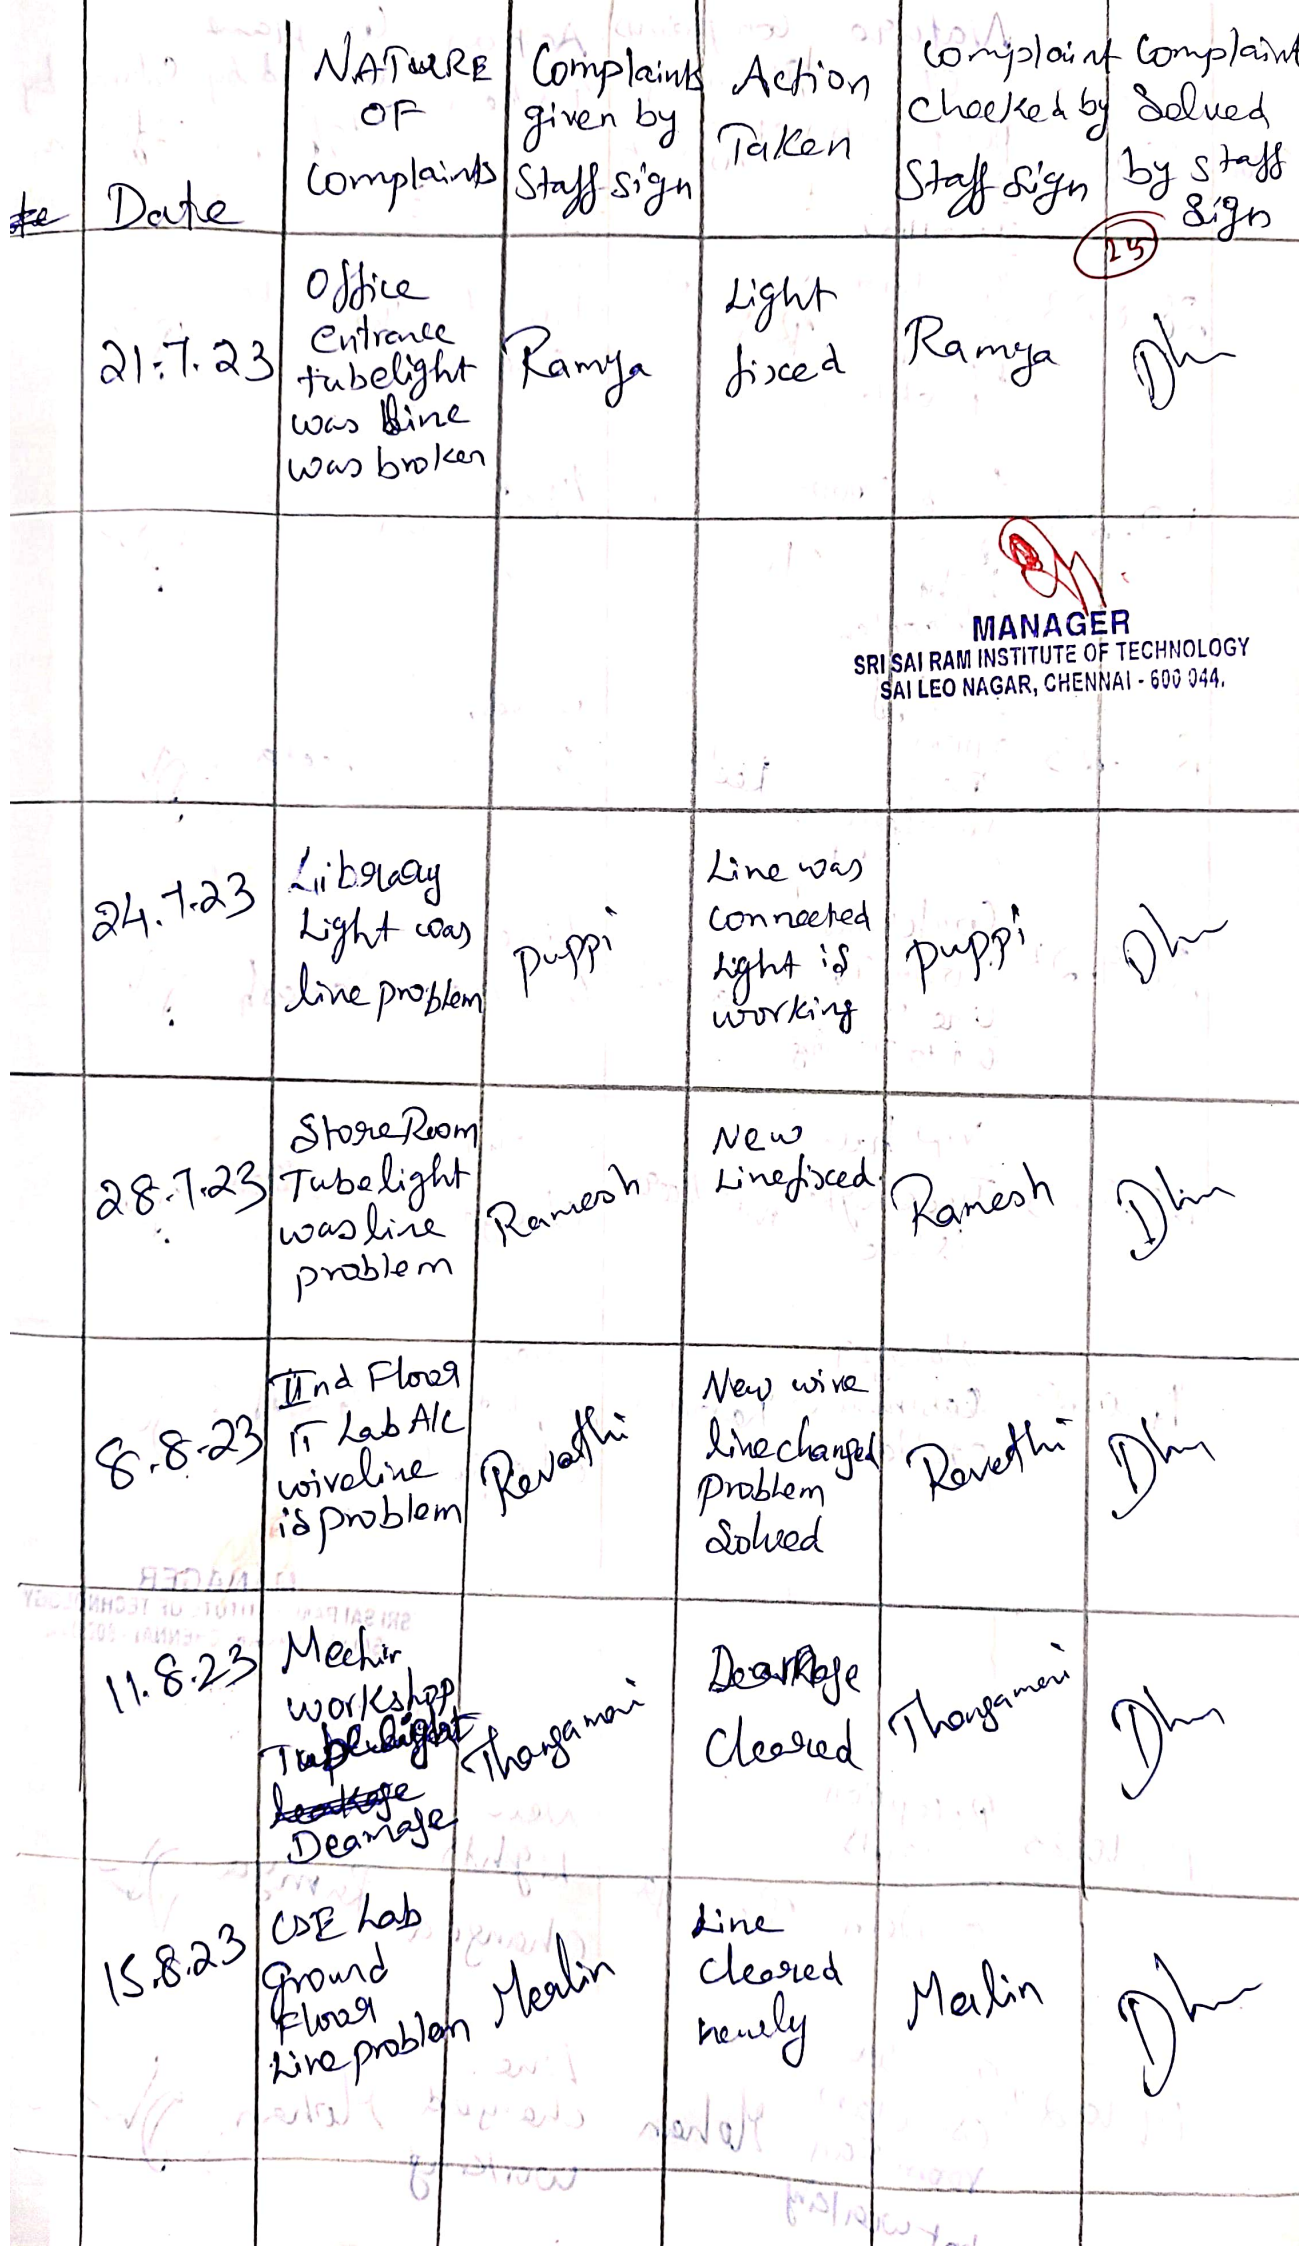 Date
NATURE
OF
Complaints
Complaints
given by
Staff sign
Action
Taken
Complaint
checked by
Staff sign
Complaint
Solved
by staff
sign
25
21.7.23
Office
entrance
tubelight
was line
was broken
Ramya
Light
fixed
Ramya
MANAGER
SRI SAI RAM INSTITUTE OF TECHNOLOGY
SAI LEO NAGAR, CHENNAI - 600 044.
24.7.23
Library
Light was
line problem
puppi
Line was
connected
Light is
working
puppi
28.7.23
Store Room
Tubelight
was line
problem
Ramesh
New
Line fixed
Ramesh
8.8.23
IInd Floor
IT Lab A/C
wireline
is problem
Revathi
New wire
line changed
problem
Solved
Revathi
11.8.23
workshop
Tubelight
Deamage
Thangamani
Cleared
Thangamani
15.8.23
CSE Lab
Ground
Floor
Line problem
Merlin
Line
Cleared
newly
Merlin